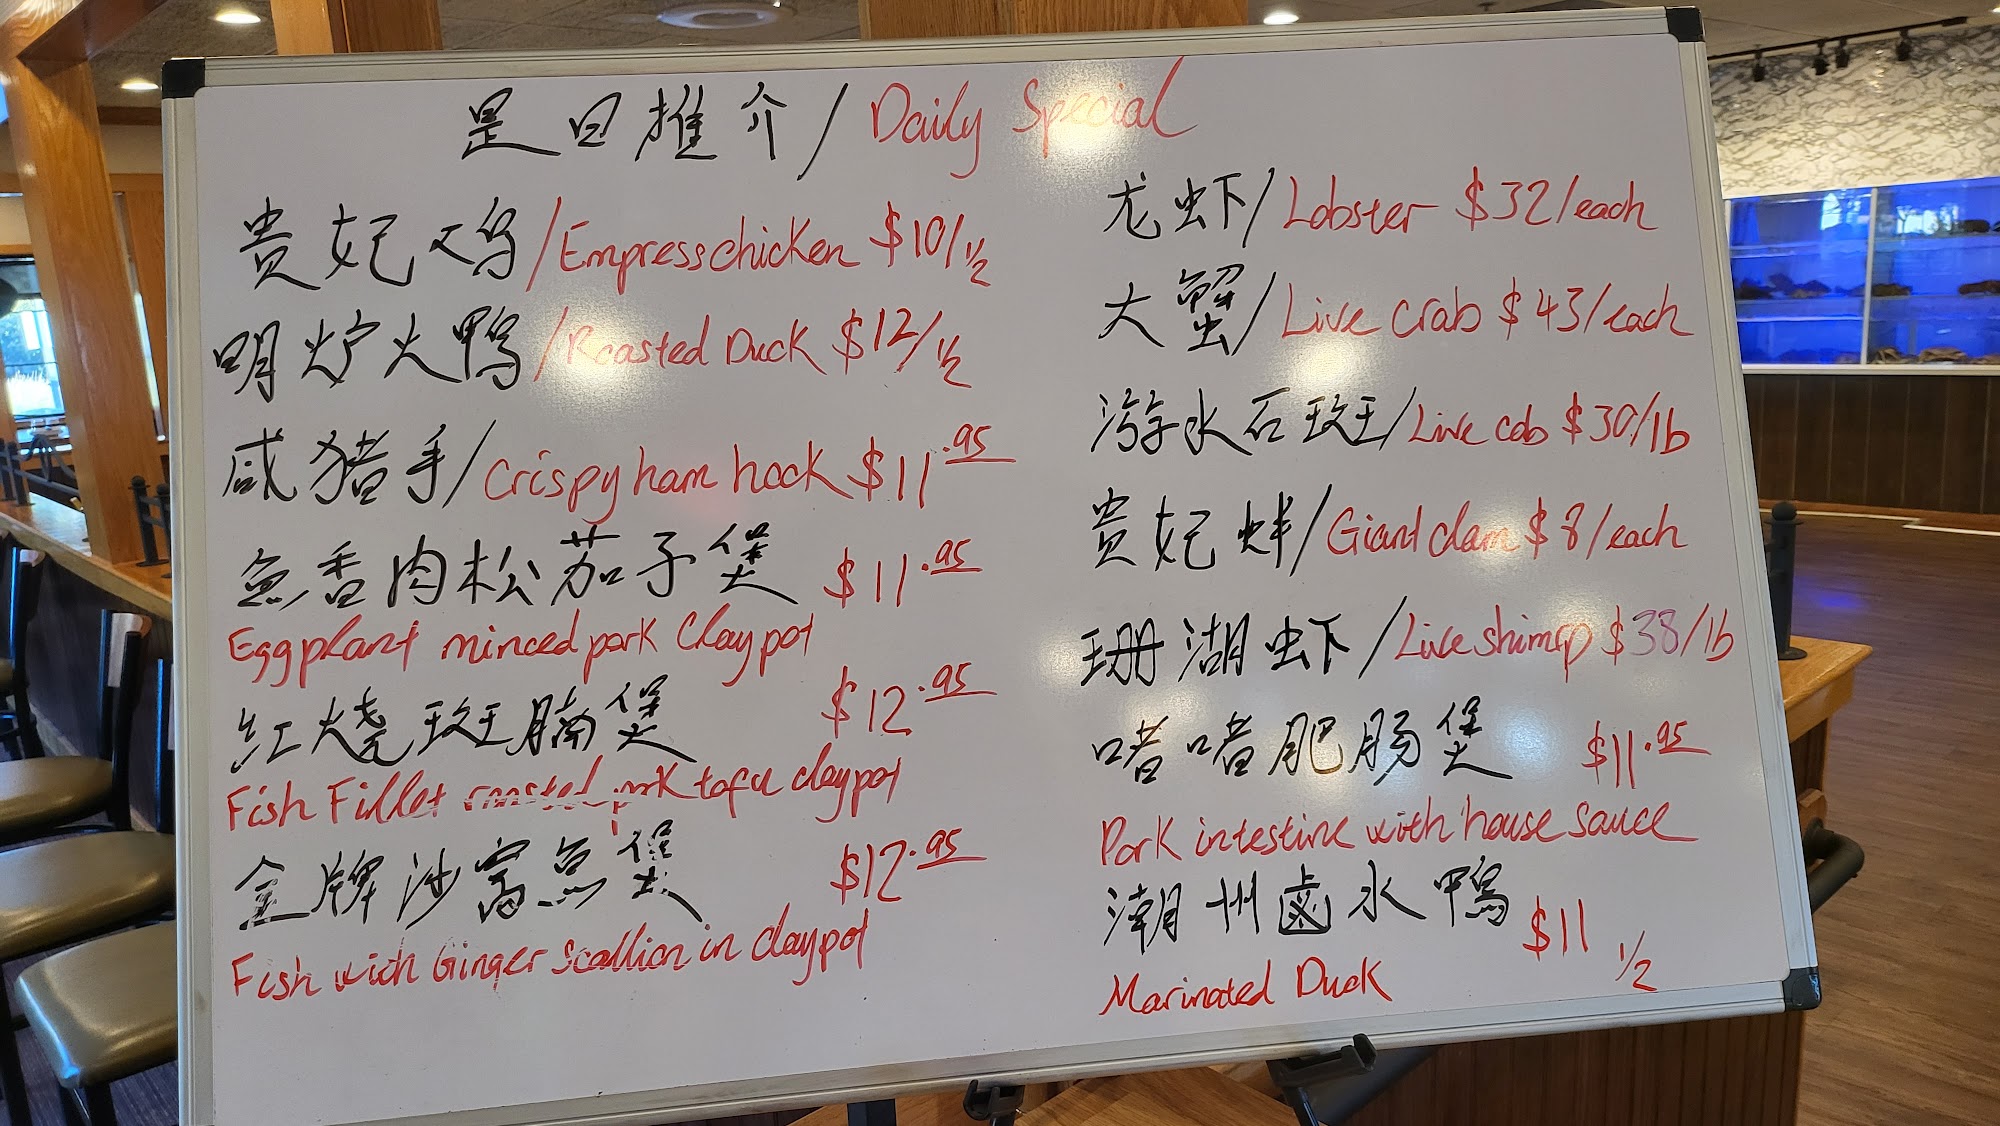 是日推介/Daily Special
貴妃鸡/Empress chicken $10/½
明炉火鸭/Roasted Duck $12/½
咸猪手/Crispy ham hock $11.95
魚香肉松茄子煲 $11.95
Eggplant minced pork Claypot
紅燒斑腩煲 $12.95
Fish Fillet roasted pork tofu claypot
金牌沙窩魚煲 $12.95
Fish with Ginger Scallion in claypot
龙虾/Lobster $32/each
大蟹/Live crab $43/each
游水石斑/Live cob $30/lb
貴妃蚌/Giant clam $8/each
珊湖虾/Live shimrp $38/lb
啫啫肥肠煲 $11.95
Pork intestine with house sauce
潮州鹵水鸭 $11 ½
Marinated Duck